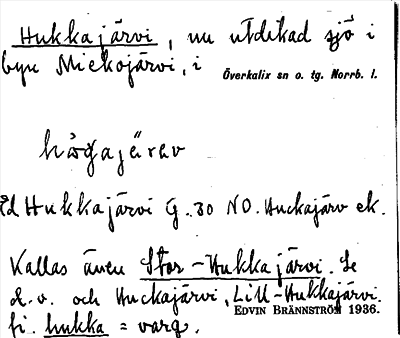 Hukkajärvi, nu utdikad sjö i
byn Mickojärvi, i
Överkalix sn o. tg. Norrb. l.
hå̀gajä́rəv
Hukkajärvi G. 30 NO. Huckajärv ek.
Kallas även Stor-Hukkajärvi. Se
d. v. och Huckajärvi, Lill-Hukkajärvi.
EDVIN BRÄNNSTRÖM 1936.
fi. hukka = varg.